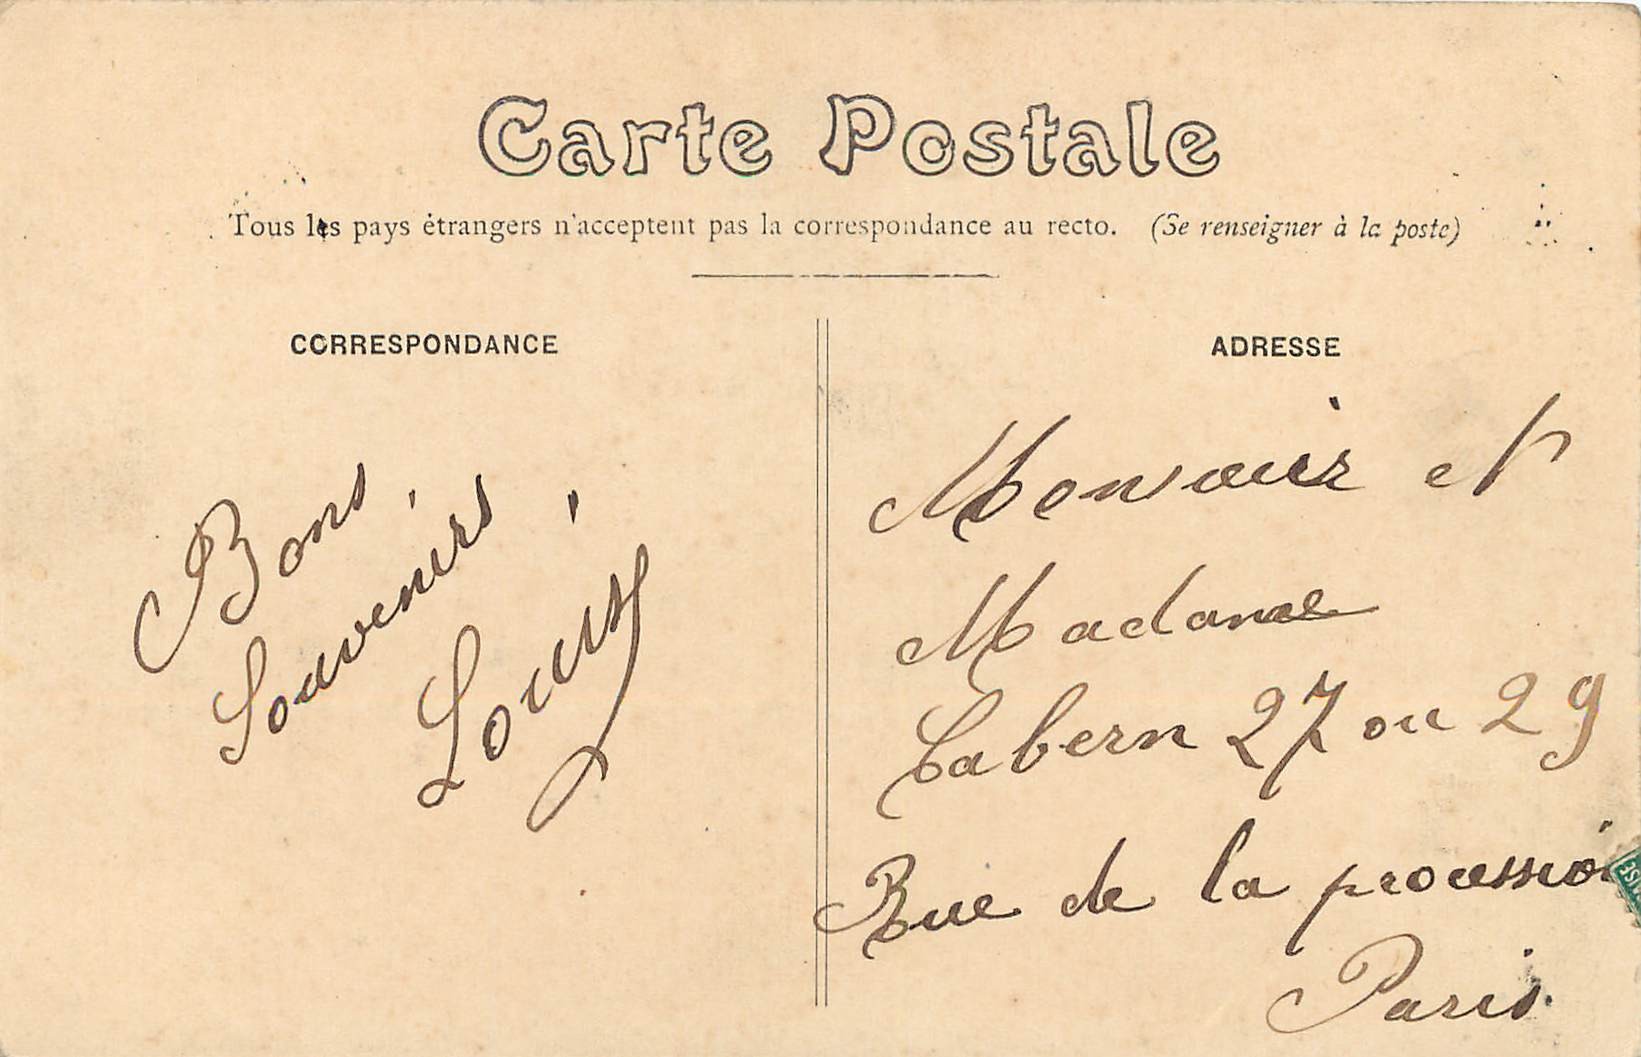 Carte Postale
Tous les pays étrangers n'acceptent pas la correspondance au recto. (Se renseigner à la poste)
CORRESPONDANCE
Bons
Souvenirs
Louis
ADRESSE
Monsieur et
Madame
Cabern 27 ou 29
Rue de la procession
Paris.